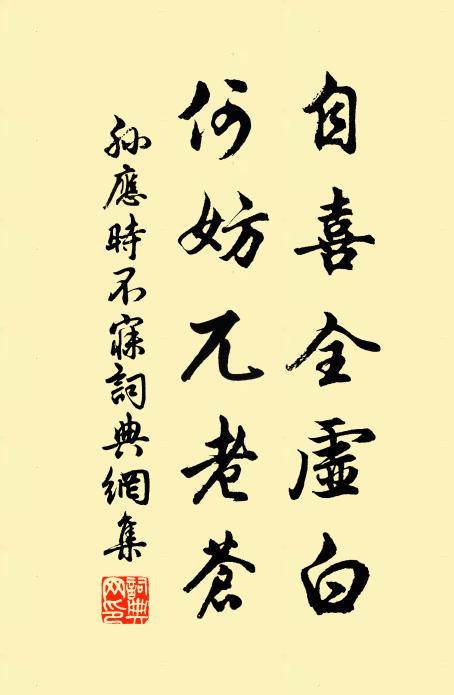 自喜全虛白
何妨兀老蒼
孫應時不寐詞典網集
詞典網印